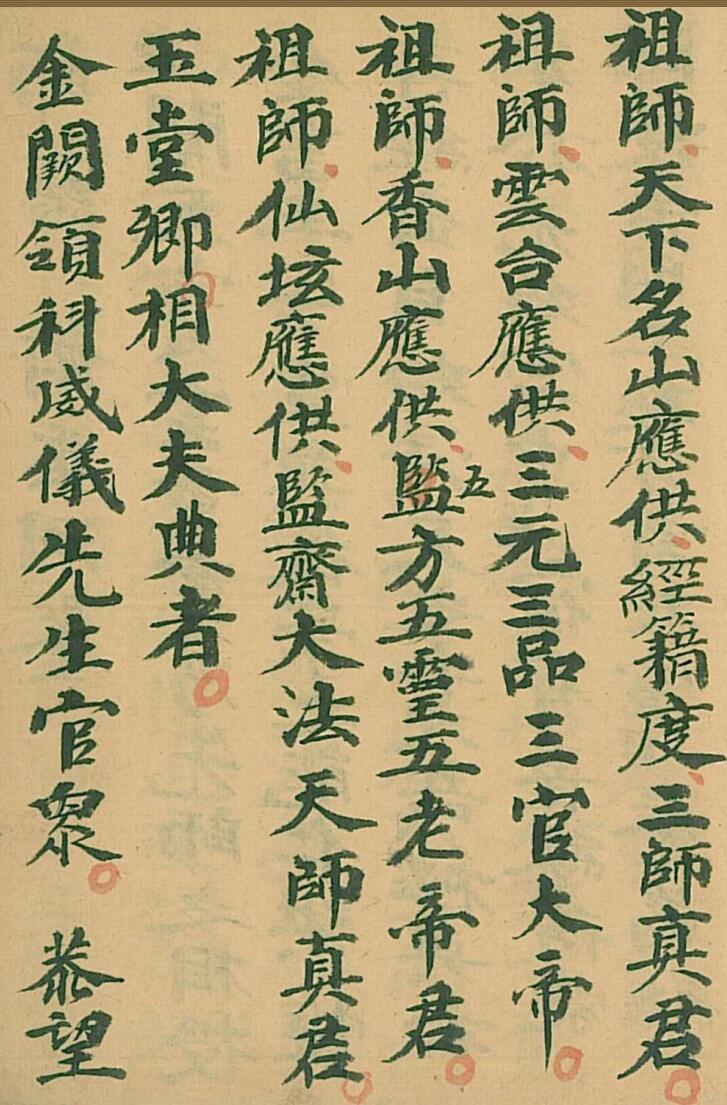 祖師天下名山應供經籍度三師真君
祖師雲台應供三元三品三官大帝
祖師香山應供監五方五靈五老帝君
祖師仙坛應供監齋大法天師真君
玉堂卿相大夫典者
金闕領科威儀先生官衆 恭望